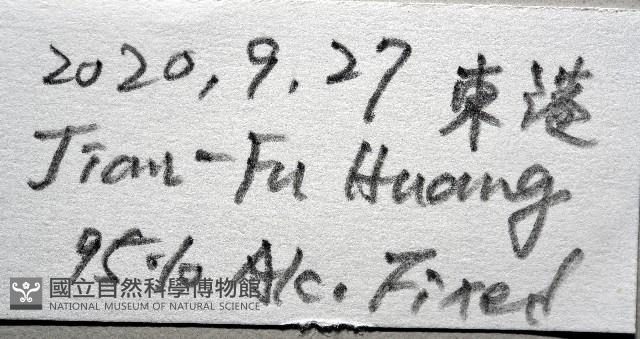 2020, 9, 27 東港
Jian-Fu Huang
95% Alc. Fixed
國立自然科學博物館
NATIONAL MUSEUM OF NATURAL SCIENCE